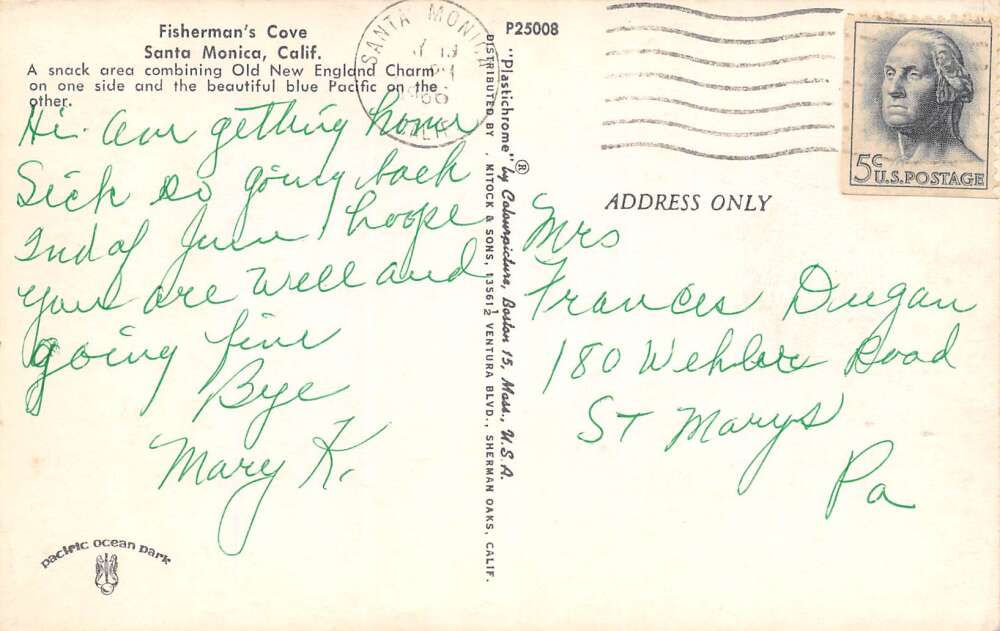 Fisherman's Cove
Santa Monica, Calif.
A snack area combining Old New England Charm
on one side and the beautiful blue Pacific on the
other.
Hi. Am getting home
Sick so going back
2nd of June, hoope
you are well and
going fine
Bye
Mary K.
pacific ocean park
P25008
"Plastichrome"® by Colourpicture, Boston 15, Mass., U.S.A.
DISTRIBUTED BY . MITOCK & SONS, 13561½ VENTURA BLVD., SHERMAN OAKS, CALIF.
SANTA MONICA
19
PM
CALIF
5c
U.S.POSTAGE
ADDRESS ONLY
Mrs
Frances Dugan
180 Wehler Road
ST Marys
Pa